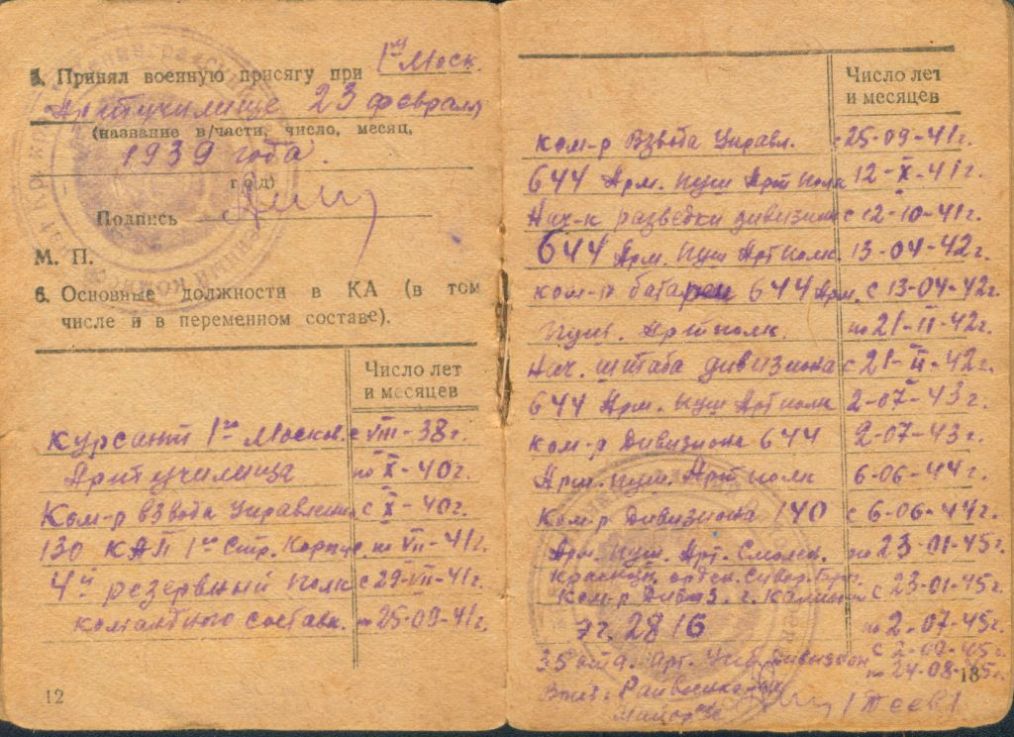 5. Принял военную присягу при 1ом Моск.
Артучилище 23 февраля
(название в/части, число, месяц,
1939 года.
год)
Подпись
М. П.
6. Основные должности в КА (в том
числе и в переменном составе).
Число лет
и месяцев
курсант 1го Москов. с VIII-38г.
Артучилища по X-40г.
Ком-р взвода управления с X-40г.
130 КАП 1го Стр. Корпуса по VII-41г.
4й резервный полк с 29-VII-41г.
комнатного состава. по 25-09-41г.
12
Число лет
и месяцев
ком-р взвода управл. с 25-09-41г.
644 Арм. пуш Арт полк 12-X-41г.
Нач-к разведки дивизиона с 12-10-41г.
644 Арм. пуш Артполк. 13-04-42г.
ком-р батареи 644 Арм. с 13-04-42г.
Пуш. Артполк. по 21-II-42г.
Нач. штаба дивизиона с 21-II-42г.
644 Арм. пуш Артполк 2-07-43г.
ком-р Дивизиона 644 2-07-43г.
Арм. пуш. Артполк 6-06-44г.
ком-р Дивизиона 140 с 6-06-44г.
Арм. Пуш. Арт. Смолен. по 23-01-45г.
Краснозн. орден. Сувор. бриг.
ком-р Дивиз. с 23-01-45г.
2816 по 2-07-45г.
с 2-07-45г.
35 Арт. Дивизион по 24-08-45г.
13
Райвоенком
Майор